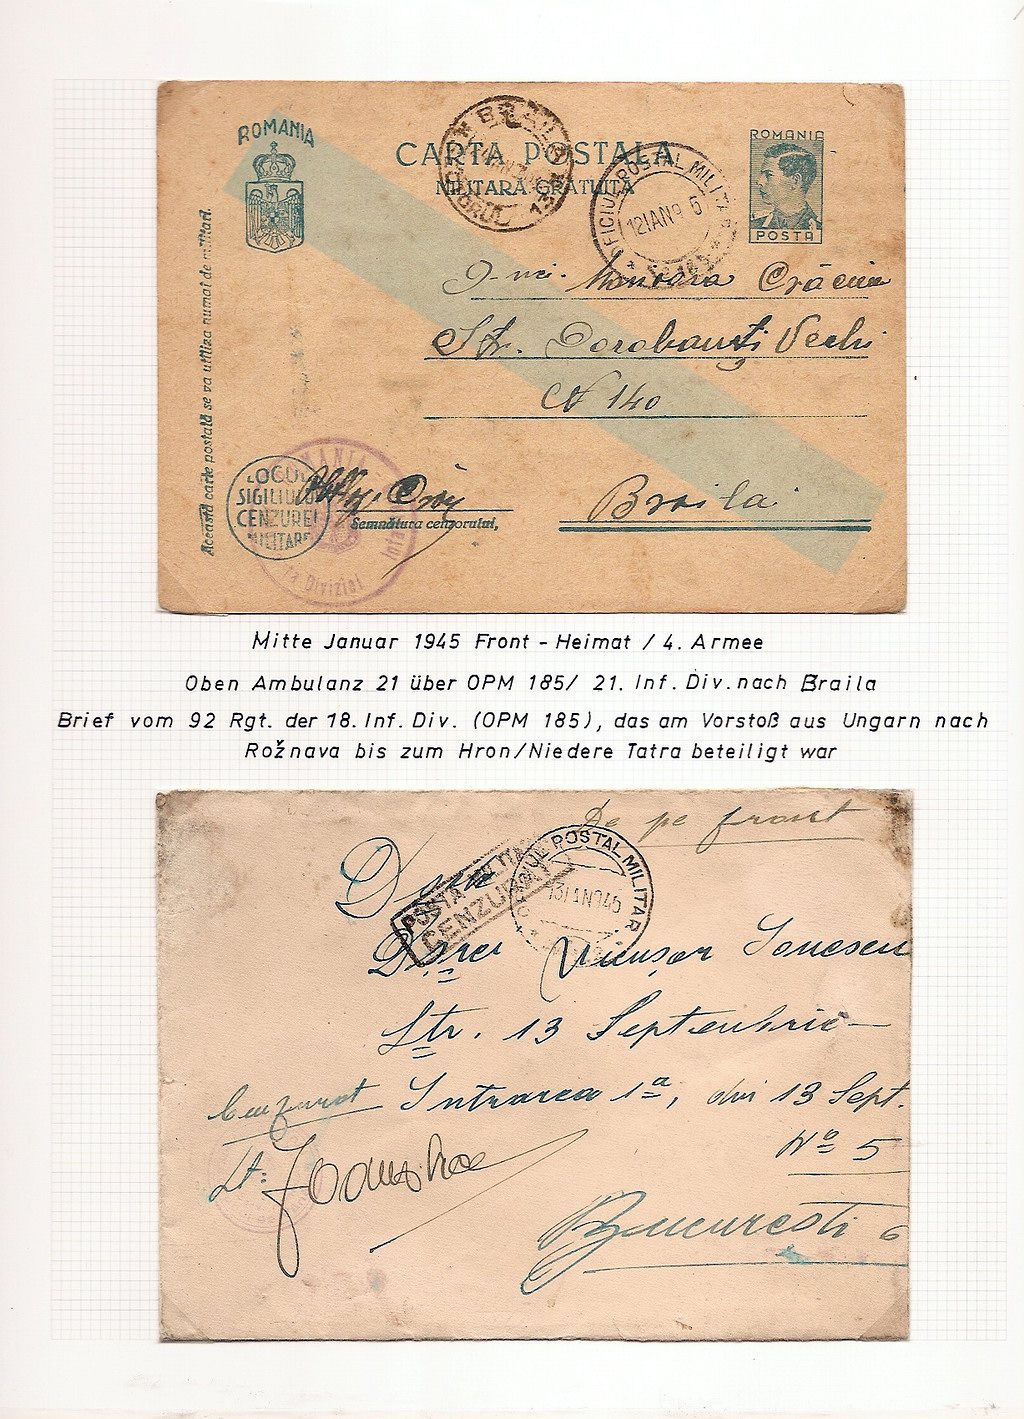 ROMANIA
CARTA POSTALA
MILITARĂ GRATUITA
ROMANIA
POSTA
BRAILA
OFICIUL POSTAL MILITAR
12 IAN 9 5
Această carte poștală se va utiliza numai de militari.
Crăciun
Str. Dorobanți Vechi
N 140
Braila
LOCUL
SIGILIULUI
CENZUREI
MILITARE
Semnătura cenzorului,
Diviziei
Mitte Januar 1945 Front - Heimat / 4. Armee
Oben Ambulanz 21 über OPM 185/ 21. Inf. Div. nach Braila
Brief vom 92 Rgt. der 18. Inf. Div. (OPM 185), das am Vorstoß aus Ungarn nach
Rožnava bis zum Hron/Niedere Tatra beteiligt war
De pe front
OFICIUL POSTAL MILITAR
13 IAN 945
POSTA MILITA
CENZURAT
Ionescu
Str. 13 Septembrie
Cenzurat Intrarea 1ª, din 13 Sept.
Nº 5
Lt.
București 6